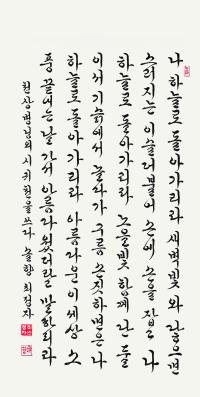 나 하늘로 돌아가리라 새벽빛 와 닿으면
스러지는 이슬 더불어 손에 손을 잡고 나
하늘로 돌아가리라 노을빛 함께 단 둘
이서 기슭에서 놀다가 구름 손짓하면은 나
하늘로 돌아가리라 아름다운 이 세상 소
풍 끝내는 날 가서 아름다웠더라 말하리라
천상병님의 시 귀천을 쓰다 솔향 최정자